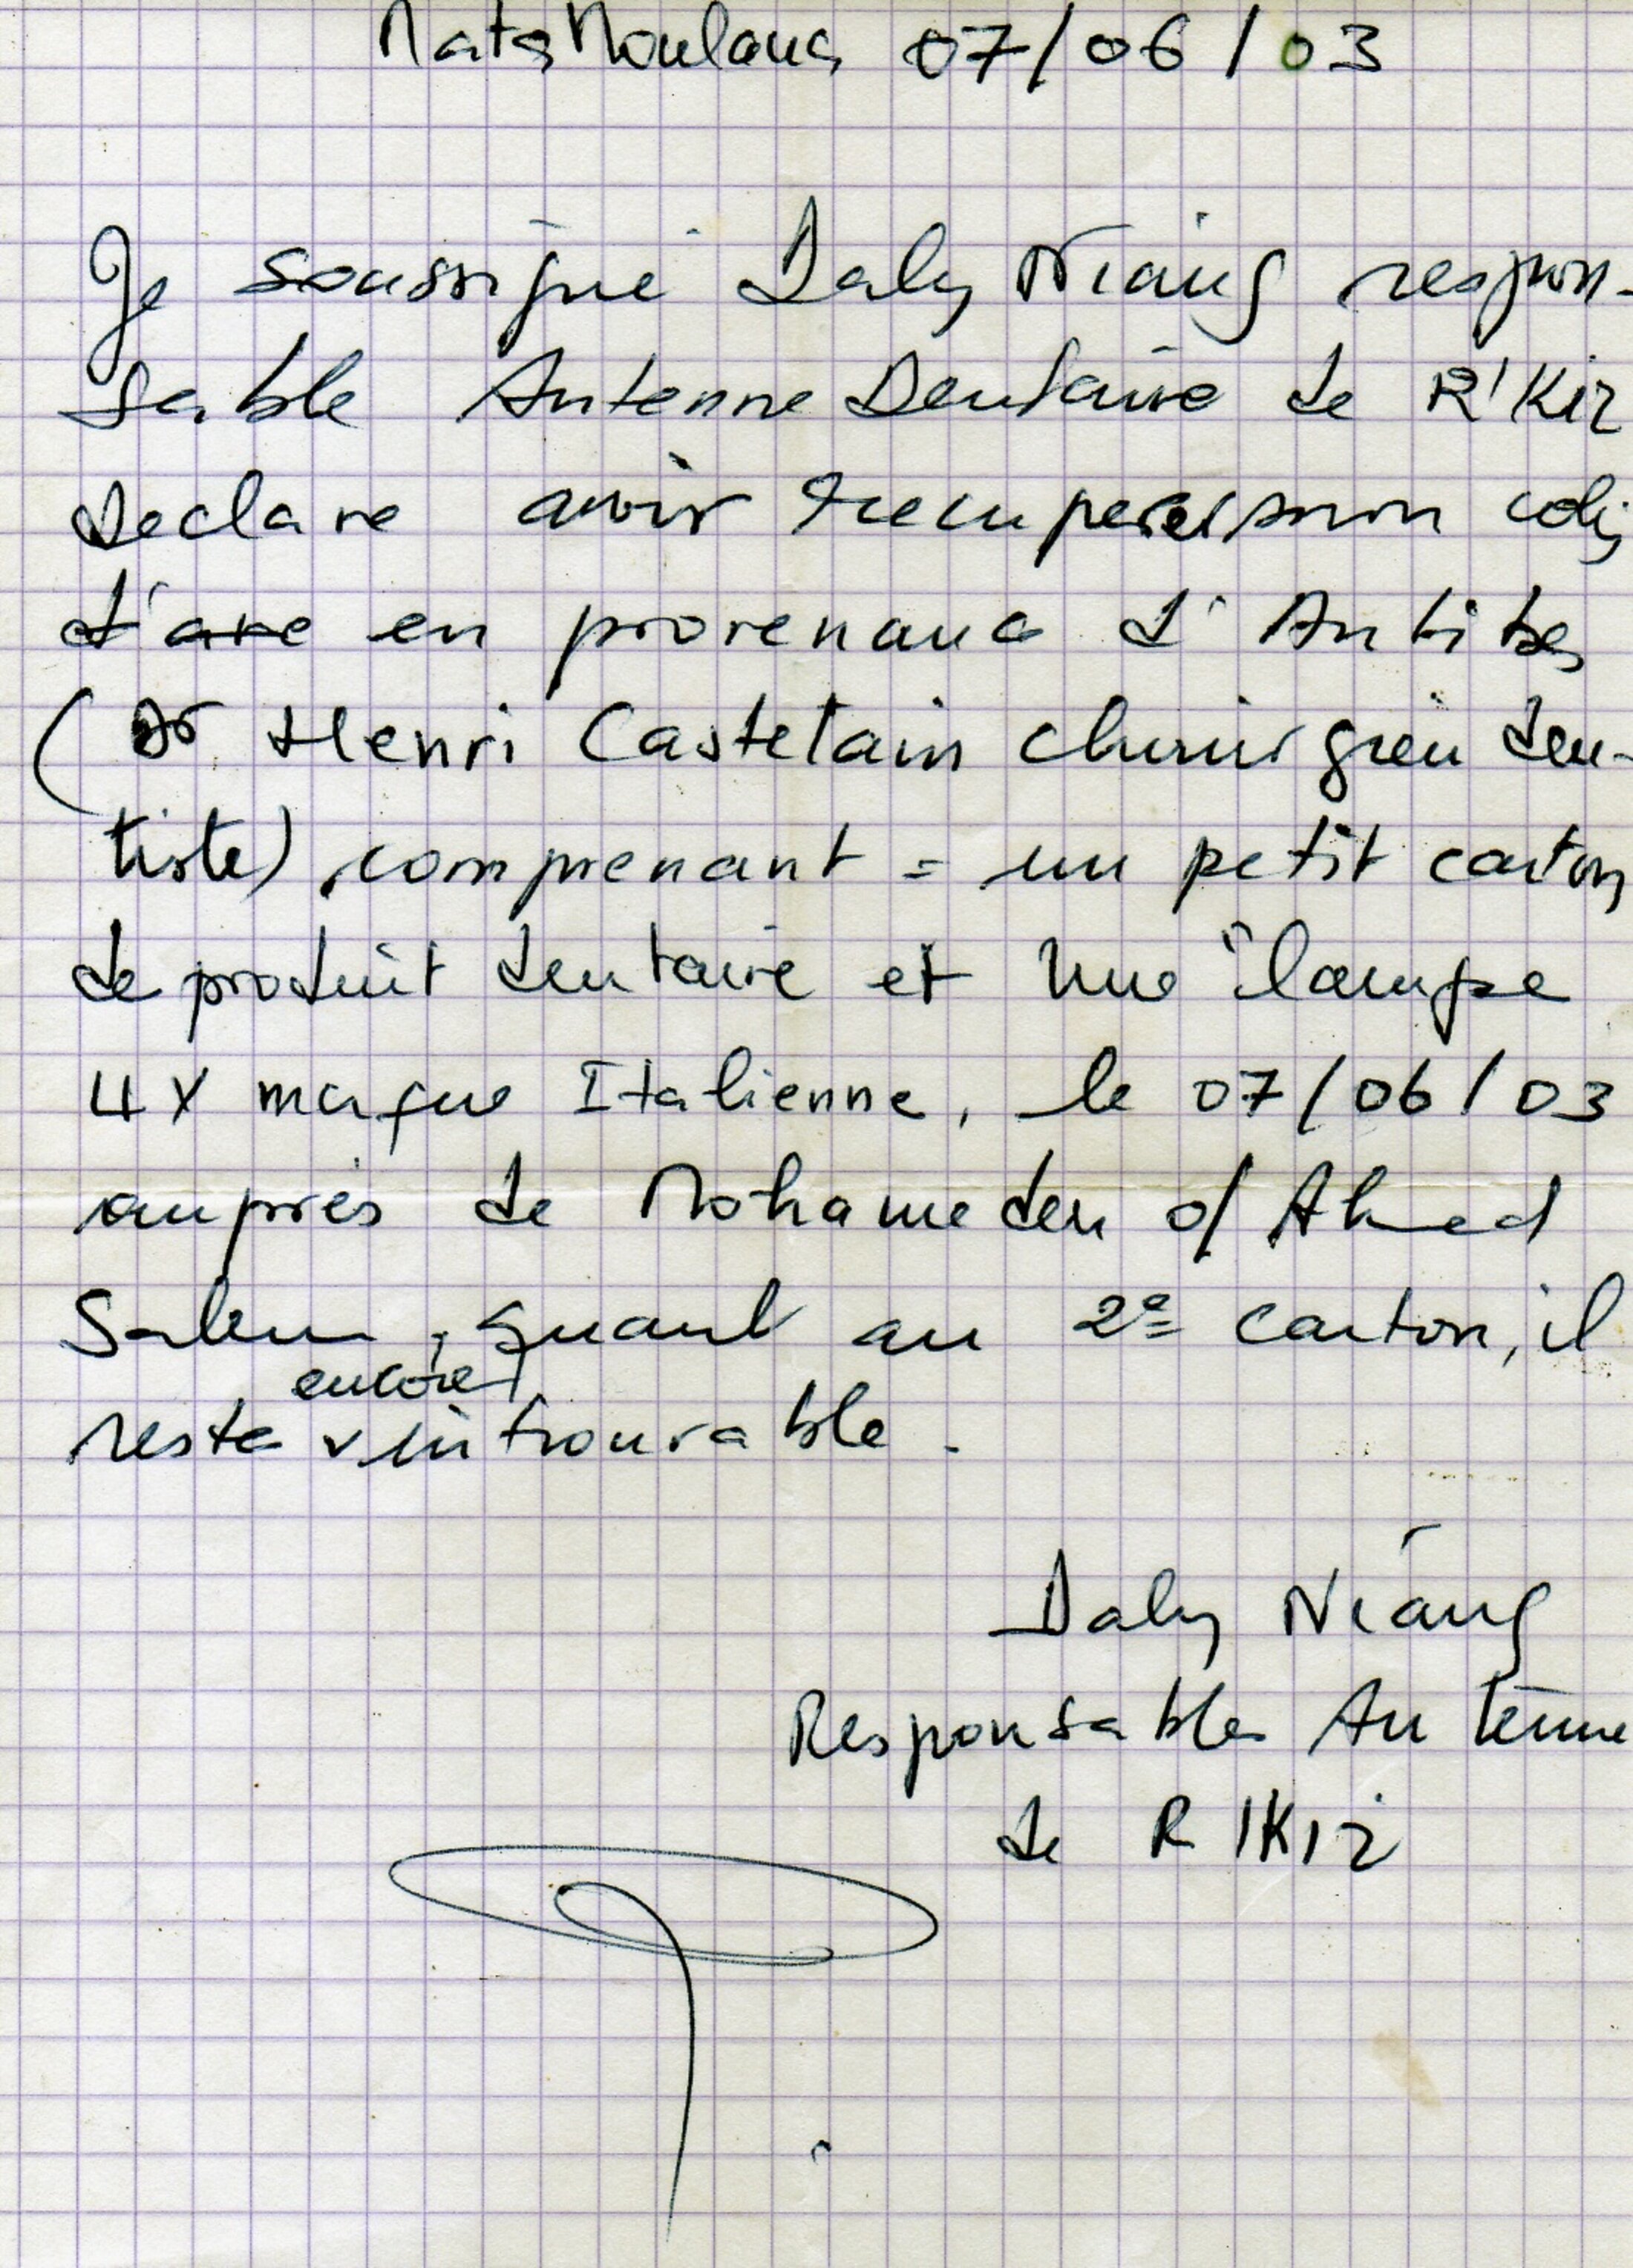 Nata Moulana 07/06/03
Je soussigné Daly Niang respon-
sable Antenne Dentaire de R'Kiz
declare avoir recuperer mon colis
d'ane en provenance d'Antibes
(Dr Henri Castelain chirurgien den-
tiste), comprenant = un petit carton
de produit dentaire et une lampe
4X marque Italienne, le 07/06/03
auprès de Mohameden o/ Ahmed
Salem, quant au 2e carton, il
encore
reste introuvable.
Daly Niang
Responsable Antenne
de R'Kiz